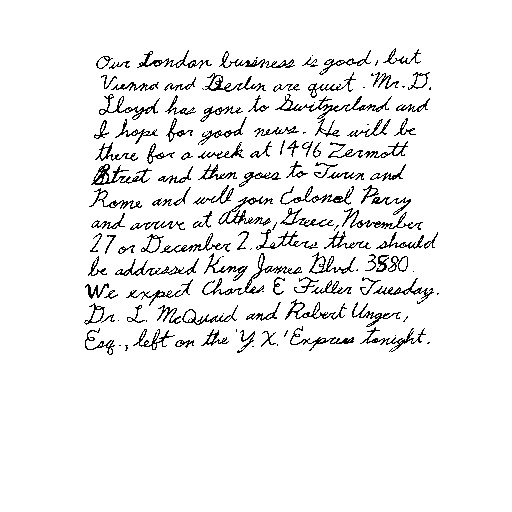 Our London business is good, but
Vienna and Berlin are quiet. Mr. D.
Lloyd has gone to Switzerland and
I hope for good news. He will be
there for a week at 1496 Zermott
Street and then goes to Turin and
Rome and will join Colonel Parry
and arrive at Athens, Greece, November
27 or December 2. Letters there should
be addressed King James Blvd. 3580.
We expect Charles E Fuller Tuesday.
Dr. L. McQuaid and Robert Unger,
Esq., left on the 'Y.X.' Express tonight.